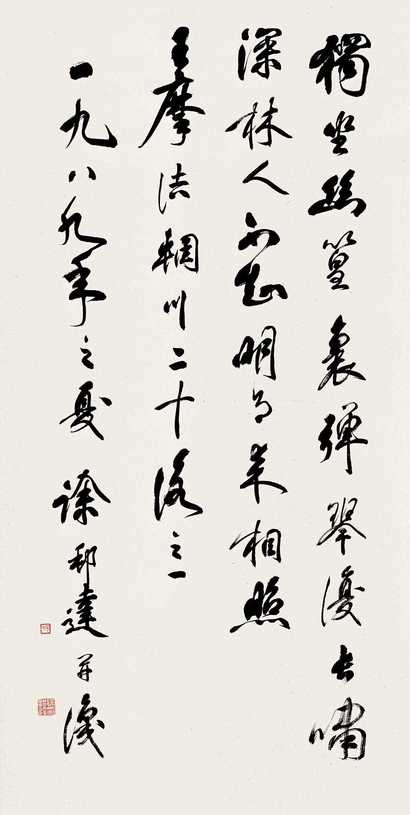 獨坐幽篁裏彈琴復長嘯
深林人不知明月來相照
王摩詰輞川二十詠之一
一九八九年之夏徐邦達并識